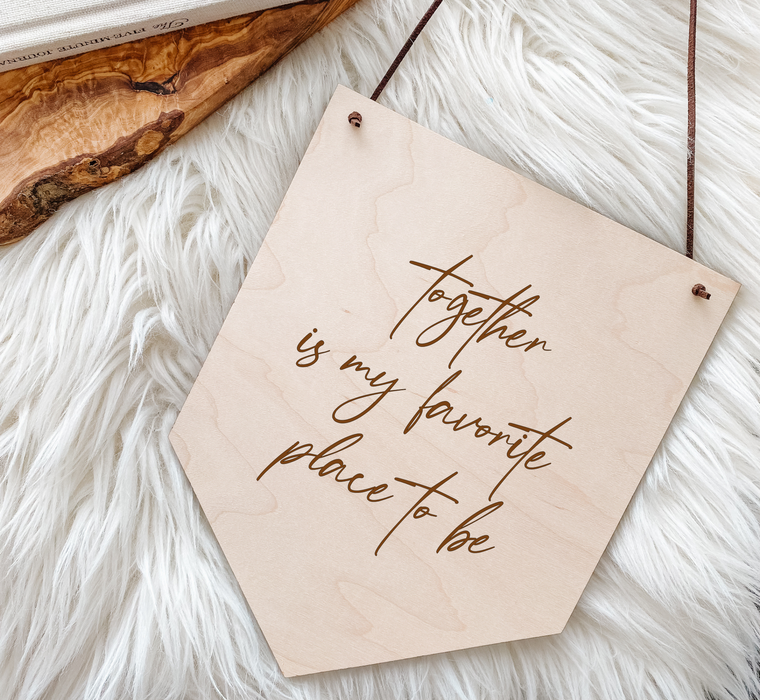 The FIVE-MINUTE JOURNAL
together
is my favorite
place to be